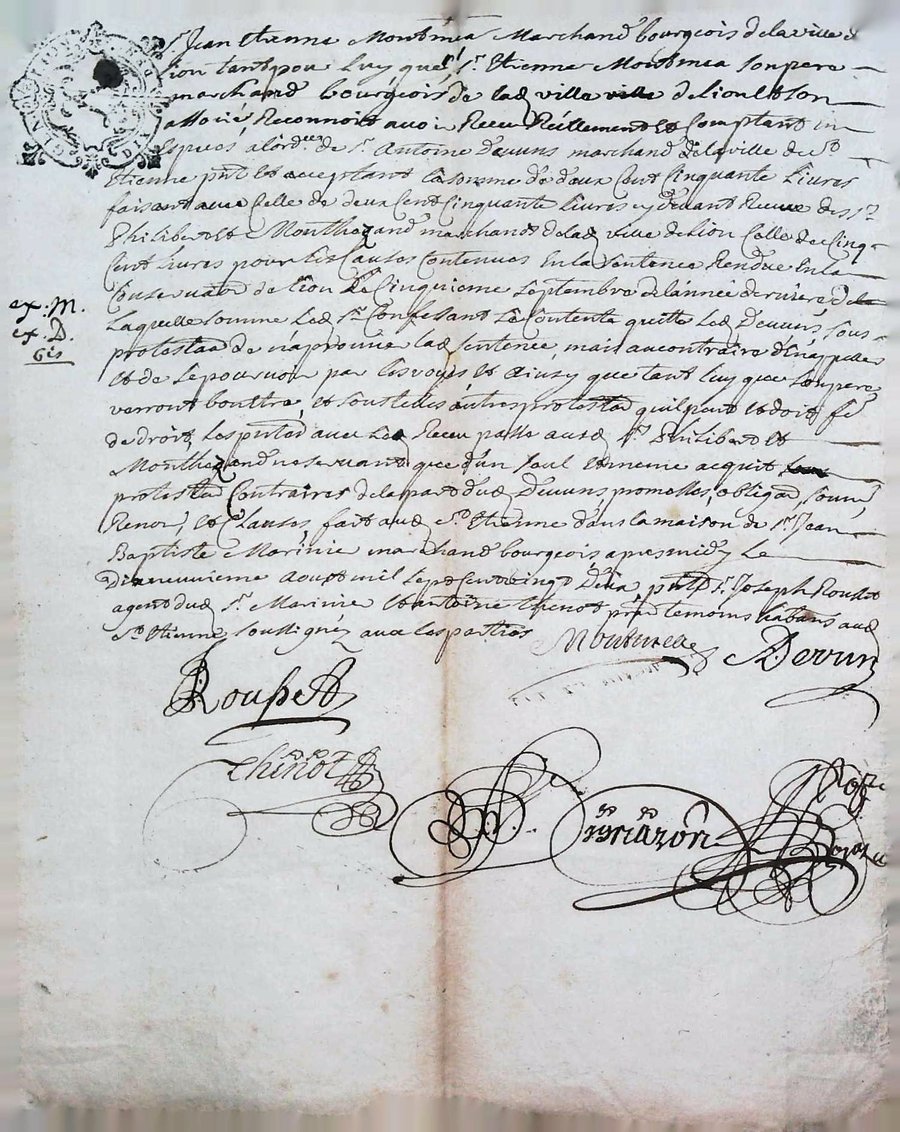 Sr Jean Etienne Montmea Marchand bourgeois dela ville d
lion tant pour luy que Sr Etienne Montmea son pere
marchand bourgeois de lad ville de lion et son
associé Reconnoit avoir Receu Réellement et Comptant en
espèces a lordre de Sr Antoine Devuns marchand dela ville de St
Etienne pnt et acceptant la somme de deux Cent Cinquante Livres
faisant avec Celle de deux Cent Cinquante Livres cydevant Receue des Srs
Philibert et marchands de lad ville de lion Celle de Cinq
Cent Livres pour les Causes Contenues En la Sentence Rendue En la
Conservaon de lion Le Cinquieme Septembre de lannée derniere de
Laquelle somme Led Sr Confessant se Contente quitte Led Devuns, sous
protestaon de naprouver lad sentence, mais au contraire den appeller
et de se pourvoir par les voyes et Ainsy que tant luy que son pere
verront bon estre, et sous telles autres protestaon quil peut et doit fe
de droit, Les pntes avec Le Receu passé ausd Srs Philibert et
ne servant que dun seul et meme acquit
protestaon Contraires de la part dud Devuns promesses, obligaon, soum,
Renon, et Clauses, fait aud St Etienne dans la maison de Sr Jean
Baptiste Marinie marchand bourgeois apres midy Le
Dixneuvieme Aoust mil sept cent vingt pnts Sr Joseph Rousset
agent dud Sr Marinie et antoine thenot temoins habans aud
St Etienne soussignéz avec les parties
Montmea
ADevun
Rousset
thenot
mazon
ex. M.
ex. D.
Gis